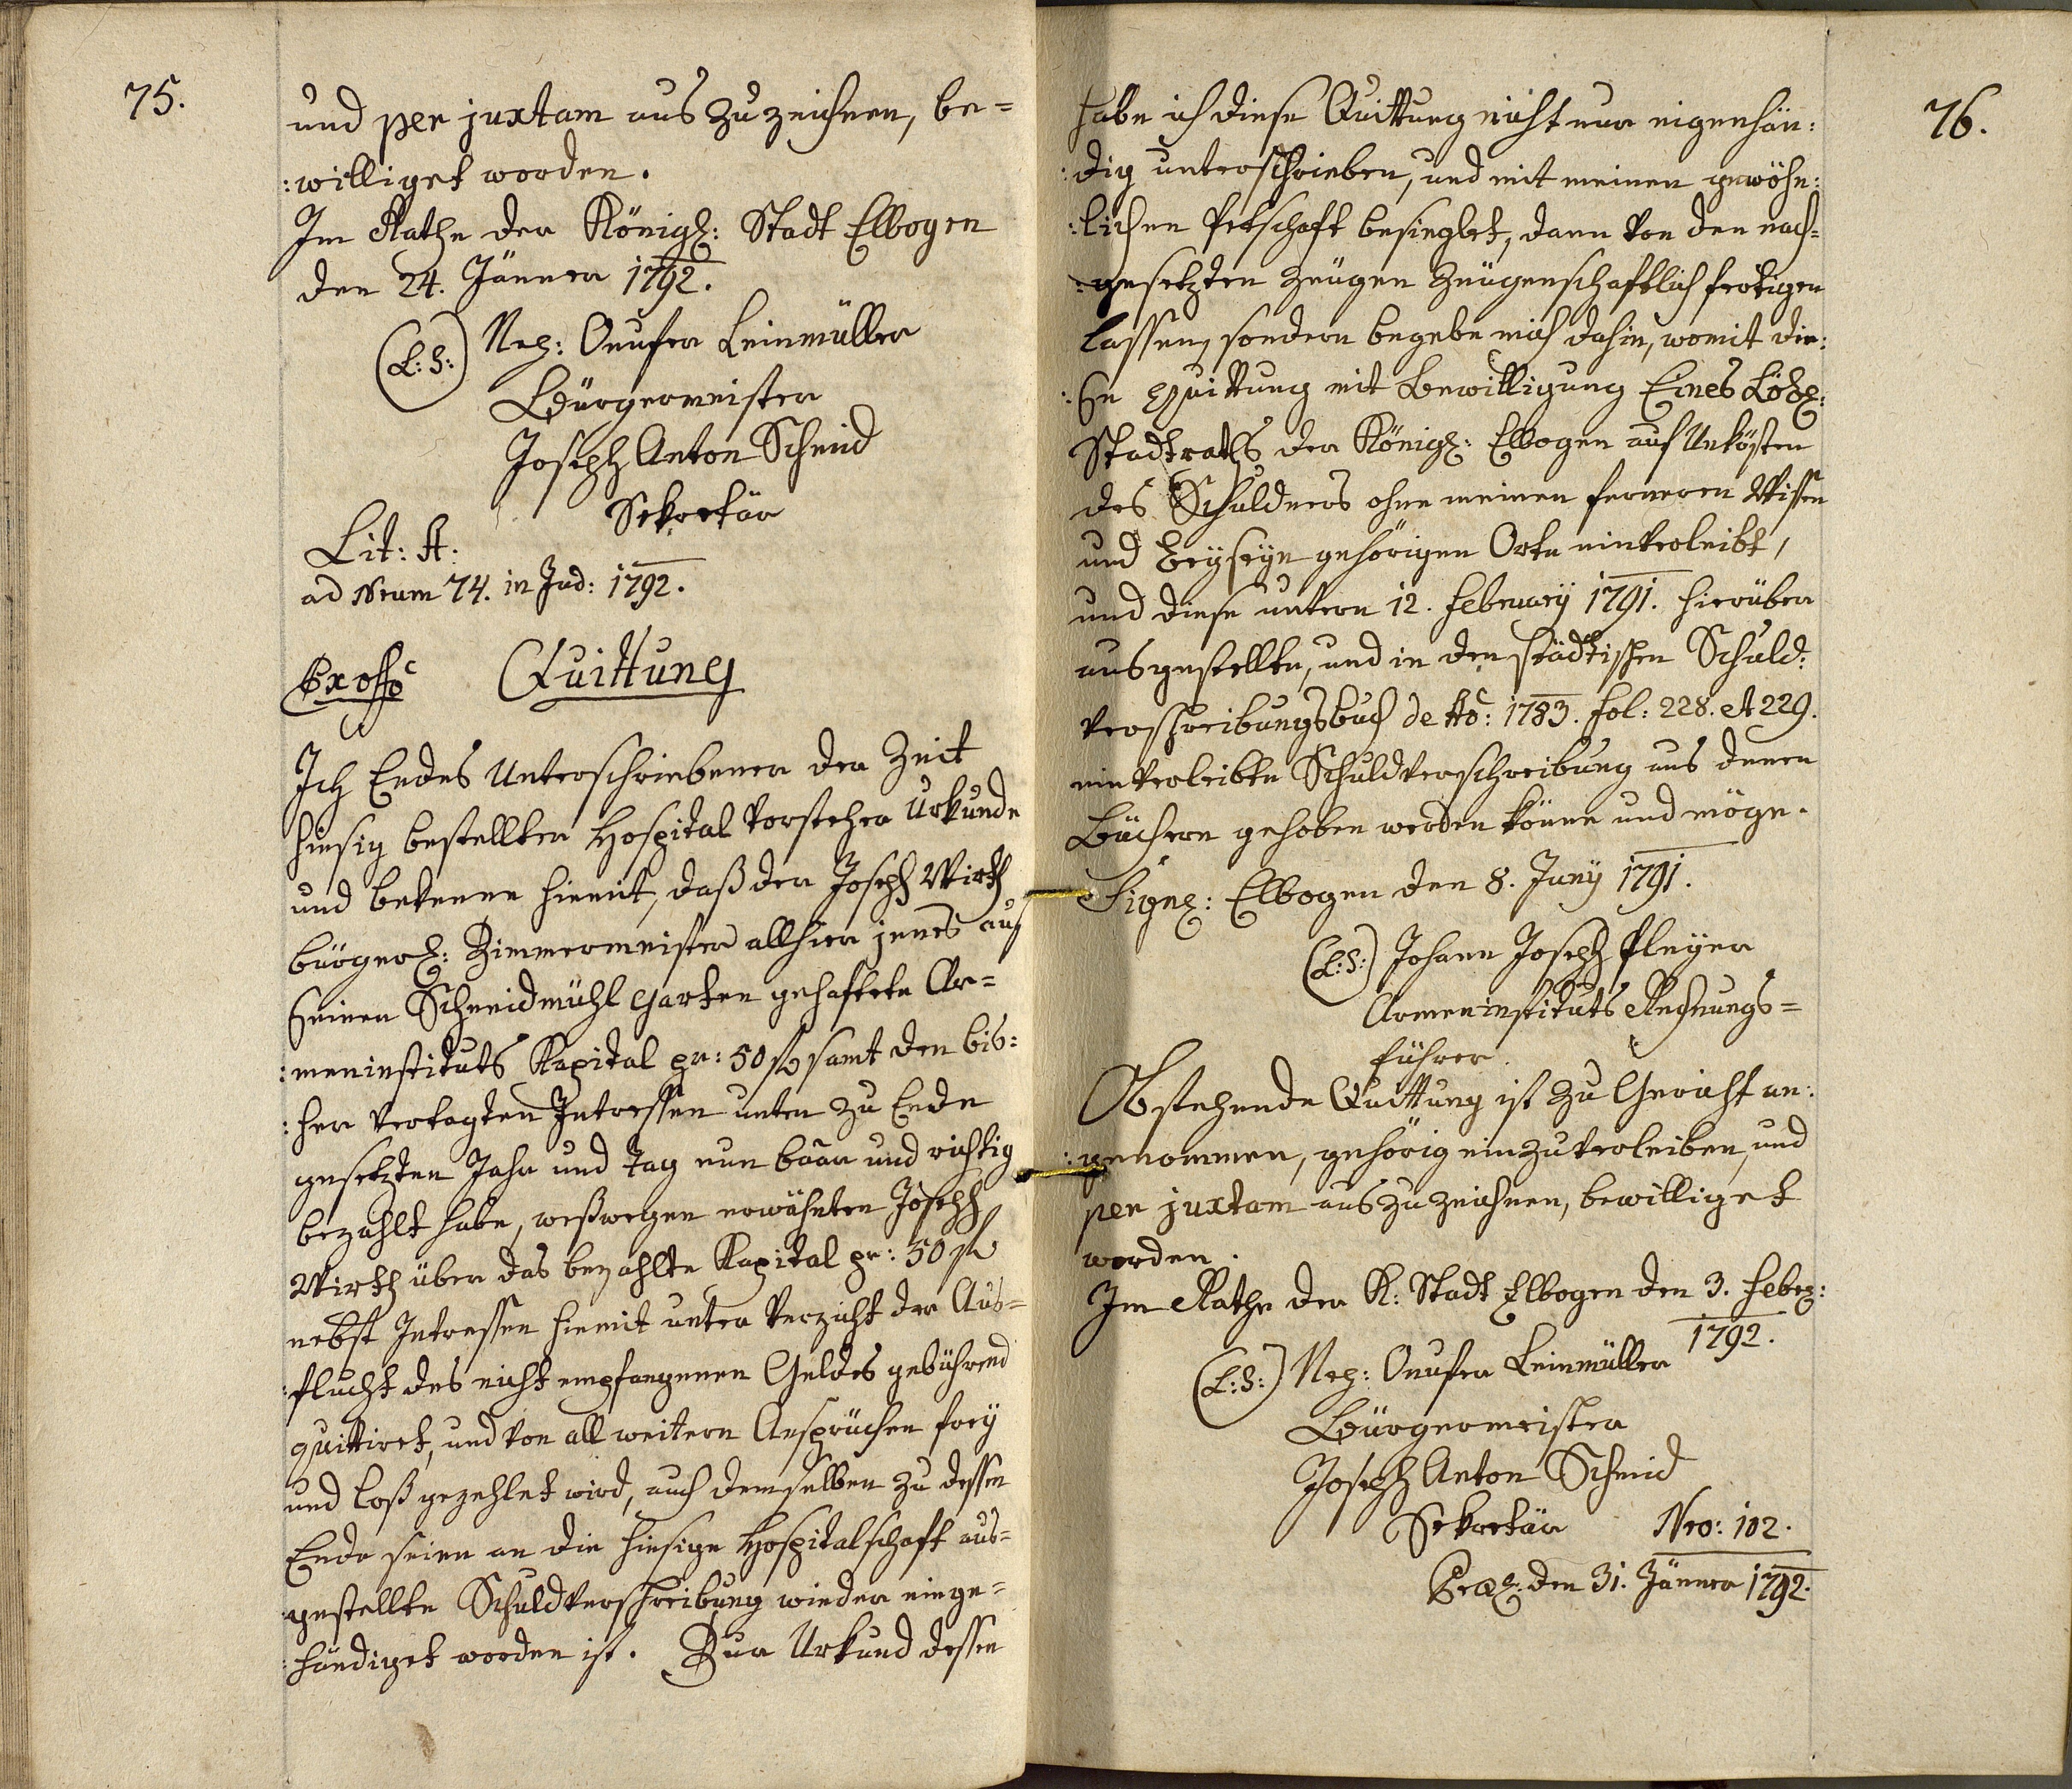 75.
und per juxtam auszuzeichnen, be=
:williget worden.
Im Rathe der Königl: Stadt Elbogen
den 24. Jänner 1792.
(L: S:) Nep: Onufer Leinmüller
Bürgermeister
Joseph Anton Schmid
Sekretär
Lit: A:
ad Nrum 74. in Jud: 1792.
Ex offo Quittung
Ich Endes Unterschriebener der Zeit
hiesig bestellter Hospital Vorsteher Urkunde
und bekenne hiemit, daß der Joseph Wirth
bürgerl: Zimmermeister allhier jenes auf
seinen Schneidmühl Garten gehaftete Ar=
:meninstituts Kapital pr: 50 fl samt den bis:
:her vertagten Intressen unten zu Ende
gesetzten Jahr und Tag nun baar und richtig
bezahlt habe, weßwegen erwähnten Joseph
Wirth über das bezahlte Kapital pr: 50 fl
nebst Intressen hiemit unter Verzicht der Aus=
:flucht des nicht empfangenen Geldes gebührend
quittiret, und von all weitern Ansprüchen frey
und loß gezehlet wird, auch demselben zu dessen
Ende seine an die hiesige Hospitalschaft aus=
:gestellte Schuldverschreibung wieder einge=
:händiget worden ist. Zur Urkund dessen
76.
habe ich diese Quittung nicht nur eigenhän:
:dig unterschrieben, und mit meinen gewöhn:
:lichen Petschaft besieglet, dann von den nach=
:gesetzten Zeugen Zeugenschaftlich fertigen
lassen, sondern begebe mich dahin, womit die:
:se Quittung mit Bewilligung Eines Löbl:
Stadtraths der Königl: Elbogen auf Unkösten
des Schuldners ohne meinen ferneren Wissen
und Beyseyn gehörigen Orte einverleibt,
und diese untern 12. February 1791. hierüber
ausgestellte, und in den städtischen Schuld:
verschreibungsbuch de Ao: 1783. fol: 228. et 229.
einverleibte Schuldverschreibung aus denen
Büchern gehoben werden könne und möge.
Signl: Elbogen den 8. Juny 1791.
(L: S:) Johann Joseph Pleyer
Armeninstituts Rechnungs=
führer.
Obstehende Quittung ist zu Gericht an:
:genommen, gehörig einzuverleiben, und
per juxtam auszuzeichnen, bewilliget
worden.
Im Rathe der K: Stadt Elbogen den 3. Febr:
1792.
(L: S:) Nep: Onufer Leinmüller
Bürgermeister
Joseph Anton Schmid
Sekretär Nro: 102.
Præs: den 31. Jänner 1792.